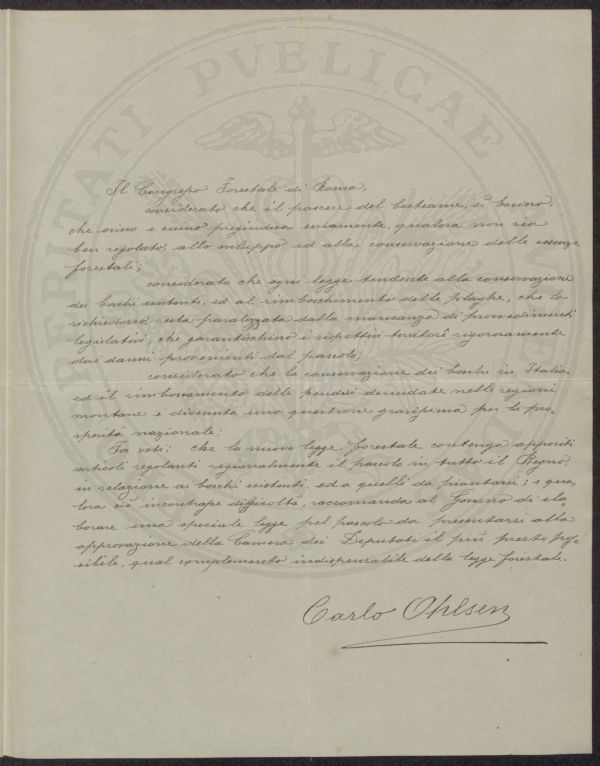 PVBLICAE
Il Congresso Forestale di Roma,
considerato che il pascere del bestiame, sì bovino,
che ovino e suino pregiudica seriamente, qualora non sia
ben regolato, allo sviluppo ed alla conservazione delle essenze
forestali;
considerato che ogni legge tendente alla conservazione
dei boschi esistenti, ed al rimboschimento delle plaghe, che lo
richiedono, resta paralizzata dalla mancanza di provvedimenti
legislativi, che garantischino i rispettivi territorî rigorosamente
dai danni provenienti dal pascolo;
considerato che la conservazione dei boschi in Italia,
ed il rimboscamento delle pendici denudate nelle regioni
montane è divenuta una questione gravissima per la pro-
sperità nazionale;
Fa voti: che la nuova legge forestale contenga appositi
articoli regolanti regionalmente il pascolo in tutto il Regno,
in relazione ai boschi esistenti, ed a quelli da piantarsi; e qua-
lora ciò incontrasse difficoltà, raccomanda al Governo di ela-
borare una speciale legge pel pascolo da presentarsi alla
approvazione della Camera dei Deputati il più presto pos-
sibile, qual complemento indispensabile della legge forestale.
Carlo Ohlsen